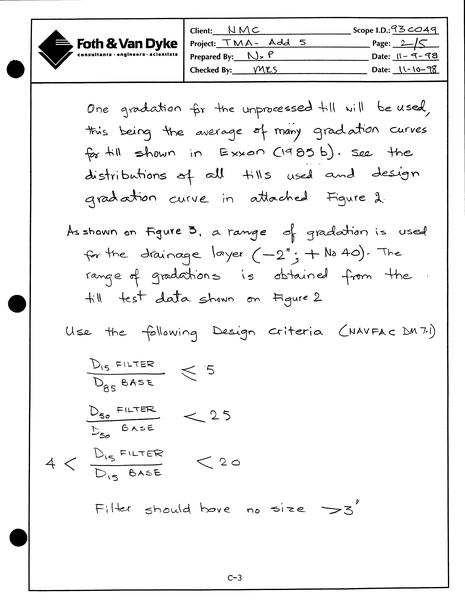 Foth & Van Dyke
consultants · engineers · scientists
Client: NMC Scope I.D.: 93C049
Project: TMA- Add 5 Page: 2/5
Prepared By: NxP Date: 11-9-98
Checked By: MES Date: 11-10-98
One gradation for the unprocessed till will be used,
this being the average of many gradation curves
for till shown in Exxon (1985b). See the
distributions of all tills used and design
gradation curve in attached Figure 2.
As shown on Figure 3, a range of gradation is used
for the drainage layer (-2"; + No 40). The
range of gradations is obtained from the
till test data shown on Figure 2
Use the following Design criteria (NAVFAC DM7.1)
D15 FILTER
D85 BASE < 5
D50 FILTER
D50 BASE < 25
4 < D15 FILTER
D15 BASE < 20
Filter should have no size >3"
C-3